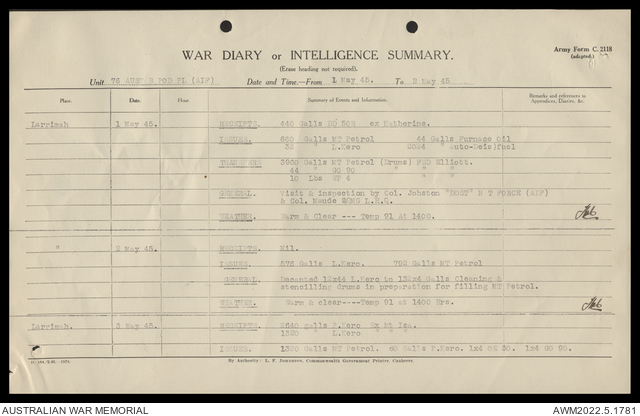 WAR DIARY or INTELLIGENCE SUMMARY.
Army Form C. 2118
(adapted)
(Erase heading not required).
Unit Date and Time.—From 1 May 45. To 2 May 45
Place. Date. Hour. Summary of Events and Information. Remarks and references to Appendices, Diaries, &c.
Larrimah 1 May 45. RECEIPTS. 440 Galls ex Katherine.
ISSUES. 660 Galls MT Petrol 44 Galls Furnace Oil
" L.Kero 2024 " fuel
TRANSFERS Galls MT Petrol (Drums) Elliott.
44 " GO 90 " "
10 Lbs " "
GENERAL. Visit & inspection by Col. Johston N T FORCE (AIF)
& Col. Maude L.H.Q.
WEATHER. Warm & Clear --- Temp 91 At 1400.
" 2 May 45. RECEIPTS. Nil.
ISSUES. 572 Galls L.Kero. 792 Galls MT Petrol
GENERAL. Decanted L.Kero to Galls Cleaning &
stencilling drums in preparation for filling MT Petrol.
WEATHER. Warm & clear----Temp 91 at 1400 Hrs.
Larrimah. 3 May 45. RECEIPTS. 2640 galls P.Kero Ex Mt Isa.
1320 " L.Kero " "
ISSUES. 1320 Galls MT Petrol. 60 Galls P.Kero. 1x4 30. 1x4 GO 90.
By Authority: L. F. Johnston, Commonwealth Government Printer, Canberra.
AUSTRALIAN WAR MEMORIAL AWM2022.5.1781